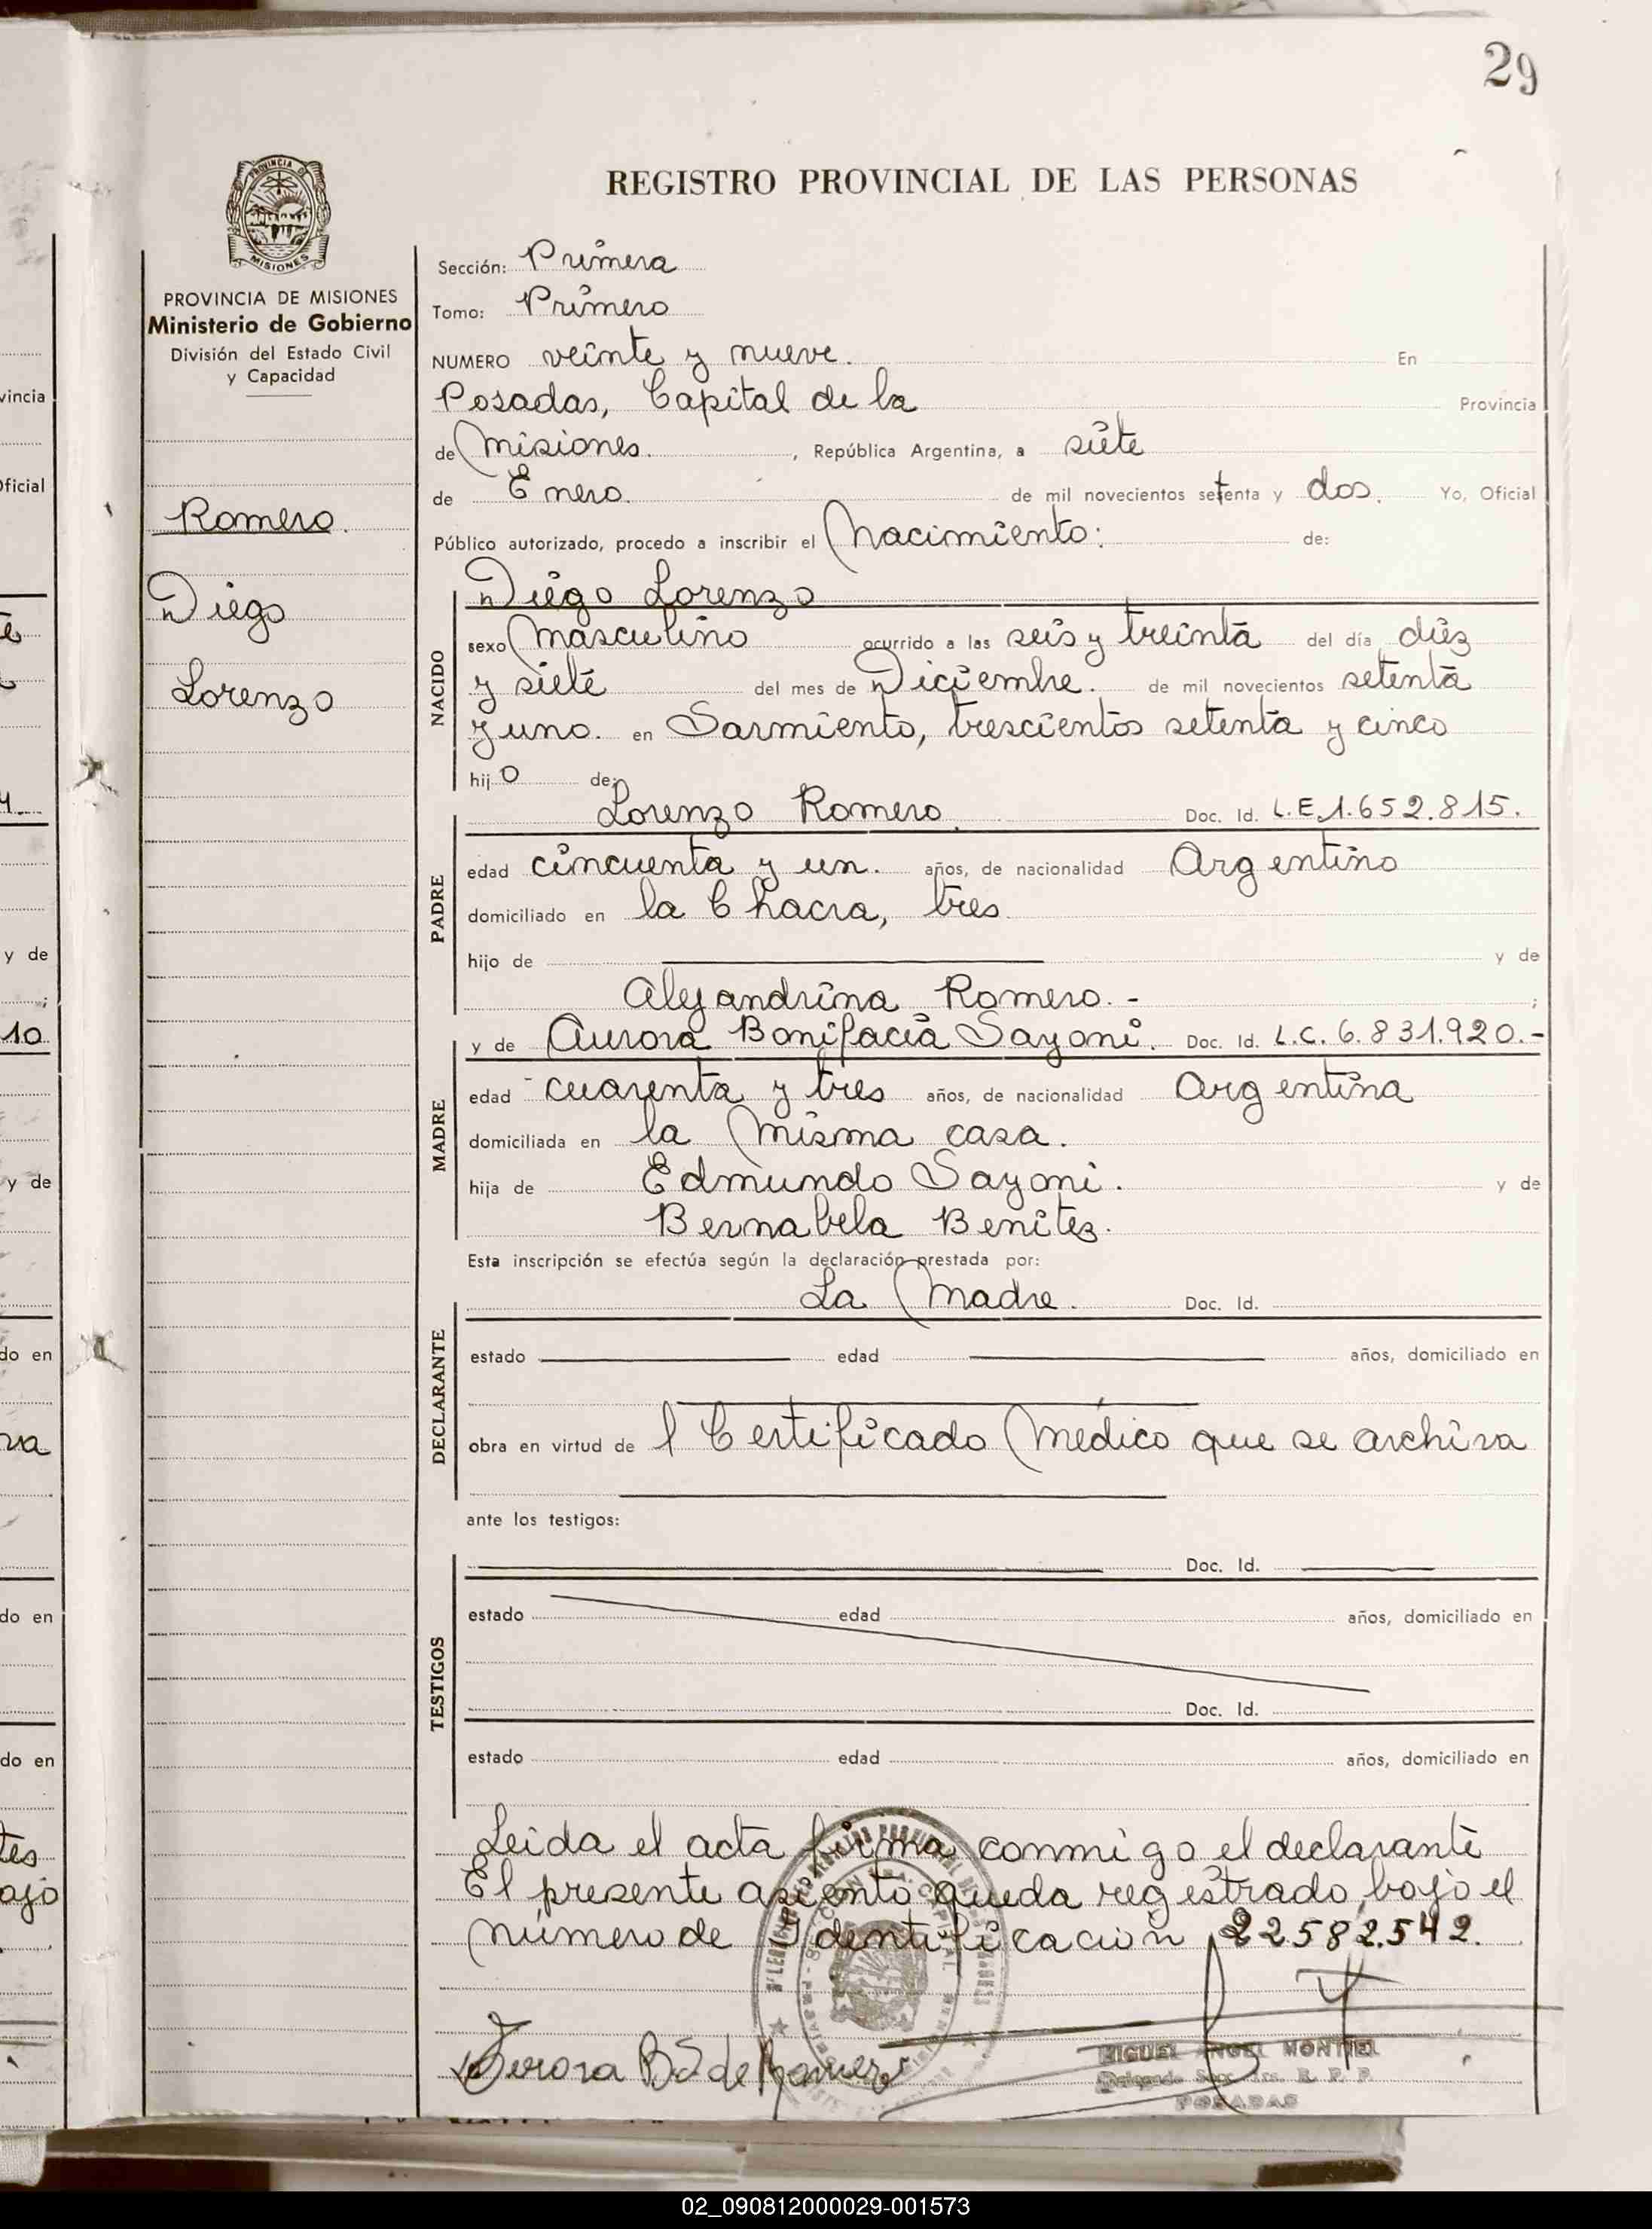 29
REGISTRO PROVINCIAL DE LAS PERSONAS
PROVINCIA DE
MISIONES
PROVINCIA DE MISIONES
Ministerio de Gobierno
División del Estado Civil
y Capacidad
Romero.
Diego
Lorenzo
Sección: Primera
Tomo: Primero
NUMERO veinte y nueve. En
Posadas, Capital de la Provincia
de Misiones. , República Argentina, a siete
de Enero. de mil novecientos setenta y dos. Yo, Oficial
Público autorizado, procedo a inscribir el Nacimiento: de:
NACIDO
Diego Lorenzo
sexo Masculino ocurrido a las seis y treinta del día diez
y siete del mes de Diciembre. de mil novecientos setenta
y uno. en Sarmiento, trescientos setenta y cinco
hijo de:
PADRE
Lorenzo Romero. Doc. Id. L.E.1.652.815.
edad cincuenta y un. años, de nacionalidad Argentino
domiciliado en la Chacra, tres
hijo de y de
Alejandrina Romero. - ;
MADRE
y de Aurora Bonifacia Sayoni. Doc. Id. L.C. 6.831.920.-
edad cuarenta y tres años, de nacionalidad Argentina
domiciliada en la misma casa.
hija de Edmundo Sayoni. y de
Bernabela Benitez.
Esta inscripción se efectúa según la declaración prestada por:
DECLARANTE
La Madre. Doc. Id.
estado edad años, domiciliado en
obra en virtud de l Certificado Médico que se archiva
ante los testigos:
TESTIGOS
Doc. Id.
estado edad años, domiciliado en
Doc. Id.
estado edad años, domiciliado en
Leida el acta firma conmigo el declarante
El presente asiento queda registrado bajo el
número de Identificación 22582.542.
Aurora B S de Romero
MIGUEL ANGEL MONTIEL
Delegado R. P. P.
POSADAS
vincia
Oficial
y de
10
y de
do en
va
do en
do en
tes
ajo
02_090812000029-001573